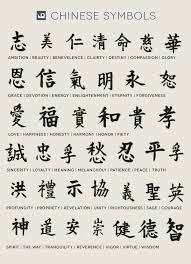 CHINESE SYMBOLS
志 美 仁 清 命 慈 華
AMBITION | BEAUTY | BENEVOLENCE | CLARITY | DESTINY | COMPASSION | GLORY
恩 信 氣 明 永 恕
GRACE | DEVOTION | ENERGY | ENLIGHTENMENT | ETERNITY | FORGIVENESS
愛 福 實 和 貴 孝
LOVE | HAPPINESS | HONESTY | HARMONY | HONOR | PIETY
誠 忠 孚 愁 忍 平
SINCERITY | LOYALTY | MEANING | MELANCHOLY | PATIENCE | PEACE
洪 禮 示 協 義 聖 英
PROFUNDITY | PROPRIETY | REVELATION | UNITY | RIGHTEOUSNESS | SAGE | COURAGE
神 道 安 崇 健 德 智
SPIRIT | THE WAY | TRANQUILITY | REVERENCE | VIGOR | VIRTUE | WISDOM